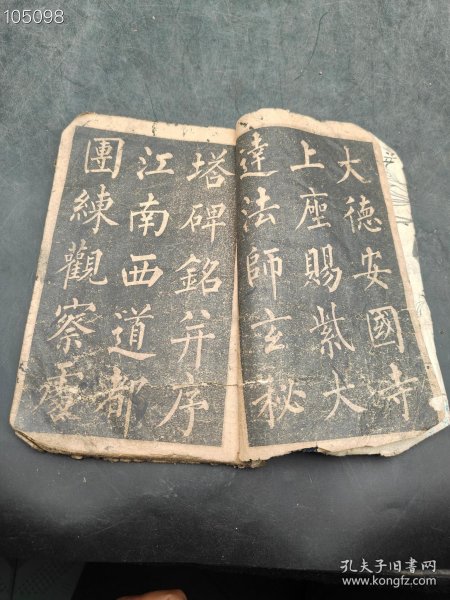 105098
大德安國寺
上座賜紫大
達法師玄秘
塔碑銘并序
江南西道都
團練觀察處
孔夫子旧书网
www.kongfz.com